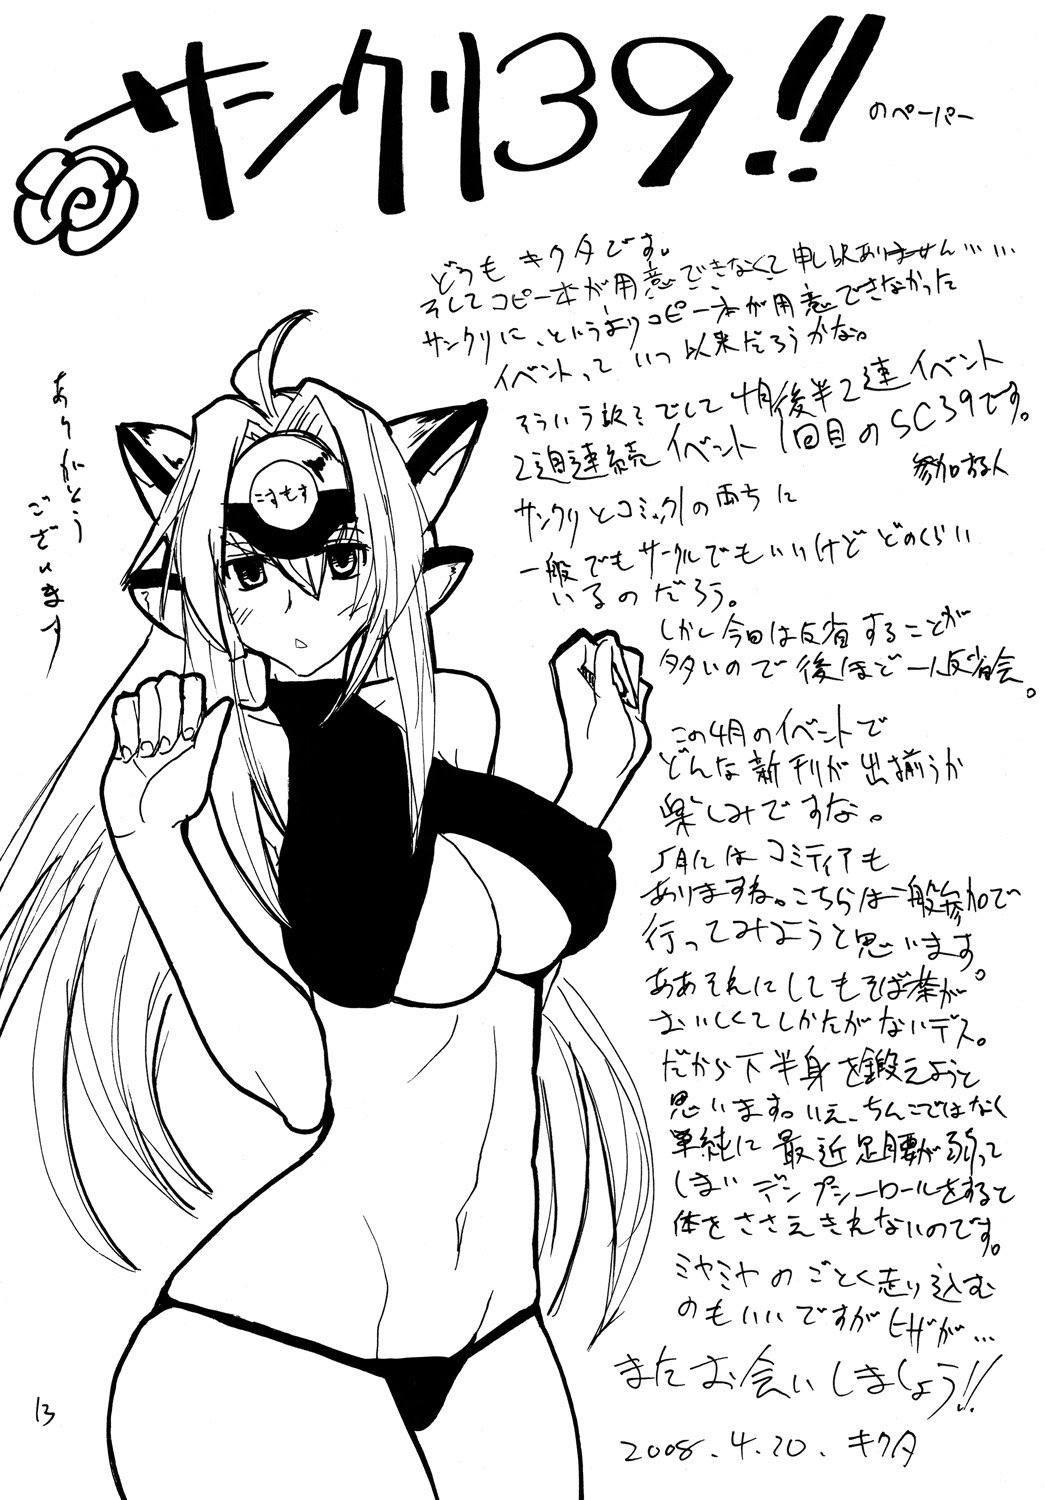 サンクリ39!!
のペーパー
どうも キクタです。
そしてコピー本が用意できなくて申し訳ありません……
サンクリに、というよりコピー本が用意できなかった
イベントって いつ以来だろうかな。
そういう訳でして4月後半2連イベント
2週連続イベント1回目のSC39です。
参加する人
サンクリとコミック1の両方に
一般でもサークルでもいいけど どのくらい
いるのだろう。
しかし今回は反省することが
多いので後ほど一人反省会。
この4月のイベントで
どんな新刊が出揃うか
楽しみですな。
5月にはコミティアも
ありますね。こちらは一般参加で
行ってみようと思います。
ああそれにしてもそば茶が
おいしくてしかたがないデス。
だから下半身を鍛えようと
思います。いえ、ちんこではなく
単純に最近足腰が弱って
しまい デンプシーロールをすると
体をささえきれないのです。
ミヤミヤのごとく走り込む
のもいいですが ヒザが…
またお会いしましょう!!
2008.4.20. キクタ
ありがとう
ございます
こすもす
13